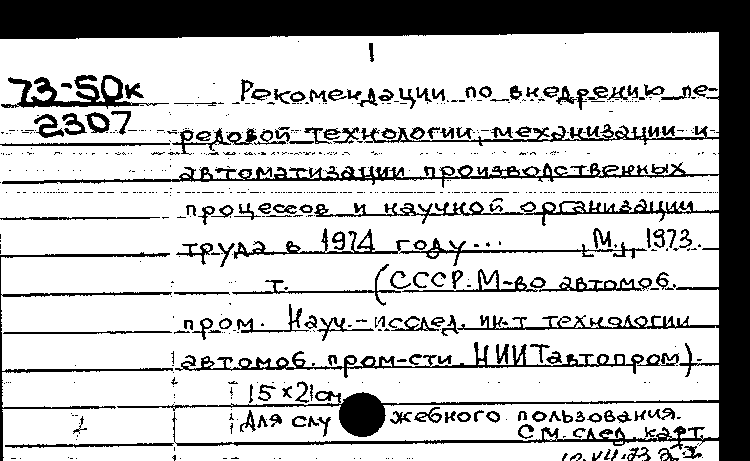 1
73-50к
2307
Рекомендации по внедрению пе-
редовой технологии, механизации и
автоматизации производственных
процессов и научной организации
труда в 1974 году... [М.], 1973.
т. (СССР. М-во автомоб.
пром. Науч.-исслед. ин-т технологии
автомоб. пром-сти. НИИТавтопром).
15×21см
Для служебного пользования.
См. след. карт.